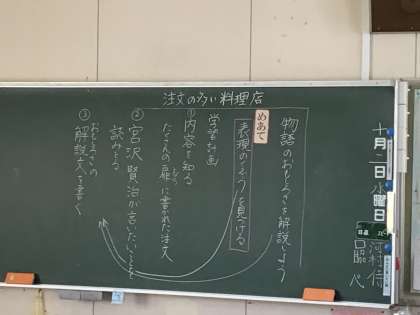 注文の多い料理店
十月二日 水曜日
日直
めあて
物語のおもしろさを解説しよう
表現のくふうを見つける
学習計画
①内容を知る
たくさんの扉に書かれた注文
②宮沢賢治が言いたいことを
読みとる
③おもしろさの
解説文を書く